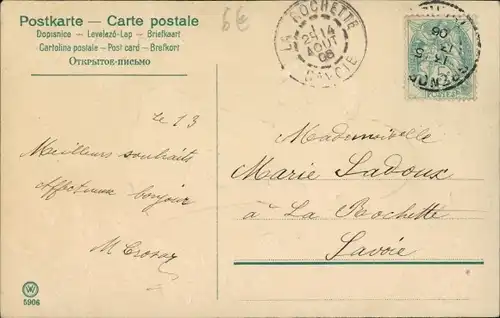 Postkarte — Carte postale
Dopisnice — Levelező-Lap — Briefkaart
Cartolina postale — Post card — Brefkort
Открытое-письмо
6€
LA ROCHETTE
14
AOUT
06
SAVOIE
le 13
Meilleurs souhaits
Affectueux bonjour
Mademoiselle
Marie Ladoux
à La Rochette
Savoie
5906